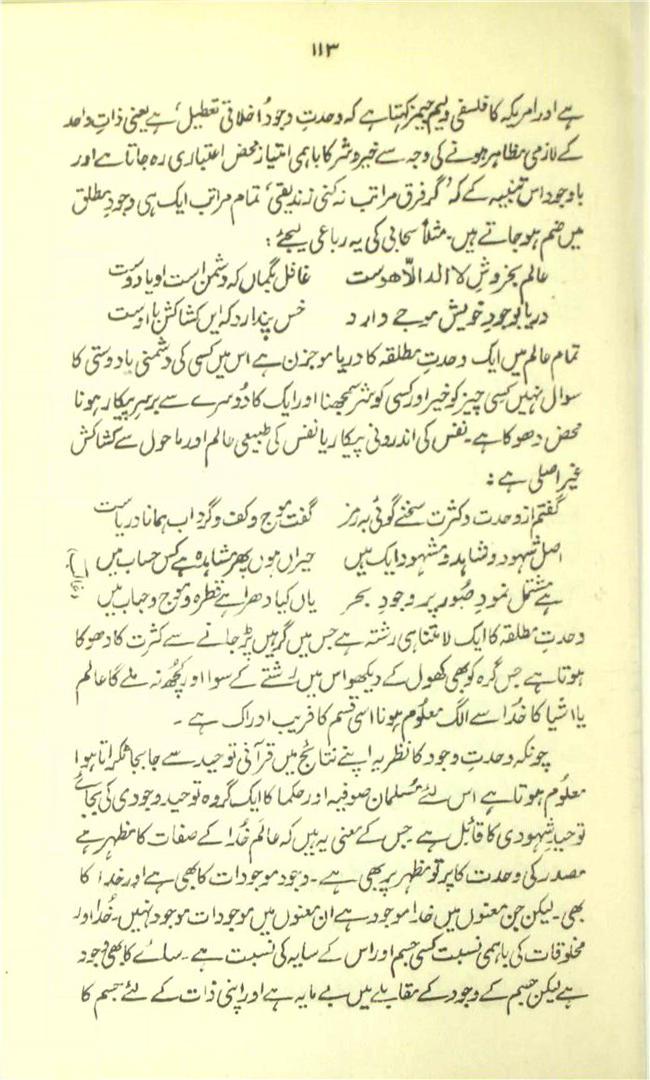 ۱۱۳
ہے اور امریکہ کا فلسفی ولیم جیمز کہتا ہے کہ وحدتِ وجود اُخلاقی تعطیل، ہے یعنی ذاتِ واحد
کے لازمی مظاہر ہونے کی وجہ سے خیر و شر کا باہمی امتیاز محض اعتباری رہ جاتا ہے اور
باوجود اس تنبیہ کے کہ 'گر فرق مراتب نہ کنی زندیقی' تمام مراتب ایک ہی وجودِ مطلق
میں ضم ہو جاتے ہیں۔ مثلاً سحابی کی یہ رباعی لیجئے :
عالم بخروشِ لا الہ الّا ھوست غافل بگماں کہ دشمن است او یا دوست
دریا بوجودِ خویش موجے دارد خس پندارد کہ ایں کشاکش با اوست
تمام عالم میں ایک وحدتِ مطلقہ کا دریا موجزن ہے اس میں کسی کی دشمنی یا دوستی کا
سوال نہیں کسی چیز کو خیر اور کسی کو شر سمجھنا اور ایک کا دُوسرے سے برسرِ پیکار ہونا
محض دھوکا ہے۔ نفس کی اندرونی پیکار یا نفس کی طبیعی عالم اور ماحول سے کشاکش
غیر اصلی ہے :
گفتم از وحدت و کثرت سخنے گوئی برمز گفت موج و کف و گرداب ہمانا دریاست
اصل شہود و شاہد و مشہود ایک ہیں حیراں ہوں پھر مشاہدہ ہے کس حساب میں
ہے مشتمل نمودِ صُور پر وجودِ بحر یاں کیا دھرا ہے قطرہ و موج و حباب میں
(غالب)
وحدتِ مطلقہ کا ایک لامتناہی رشتہ ہے جس میں گرہیں پڑ جانے سے کثرت کا دھوکا
ہوتا ہے جس گرہ کو بھی کھول کے دیکھو اس میں رشتے کے سوا اور کچھ نہ ملے گا عالم
یا اشیا کا خُدا سے الگ معلُوم ہونا اسی قسم کا فریب ادراک ہے ۔
چونکہ وحدتِ وجود کا نظریہ اپنے نتائج میں قرآنی توحید سے جا بجا ٹکراتا ہوا
معلُوم ہوتا ہے اس لئے مُسلمان صوفیہ اور حکما کا ایک گروہ توحید وجودی کی بجائے
توحیدِ شہودی کا قائل ہے جس کے معنی یہ ہیں کہ عالَم خُدا کے صفات کا مظہر ہے
مصدر کی وحدت کا پرتو مظہر پر بھی ہے ۔ وجود موجودات کا بھی ہے اور خدا کا
بھی ۔ لیکن جن معنوں میں خدا موجود ہے ان معنوں میں موجودات موجود نہیں ۔ خُدا اور
مخلوقات کی باہمی نسبت کسی جسم اور اس کے سایہ کی نسبت ہے ۔ سائے کا بھی وجود
ہے لیکن جسم کے وجود کے مقابلے میں بے مایہ ہے اور اپنی ذات کے لئے جسم کا